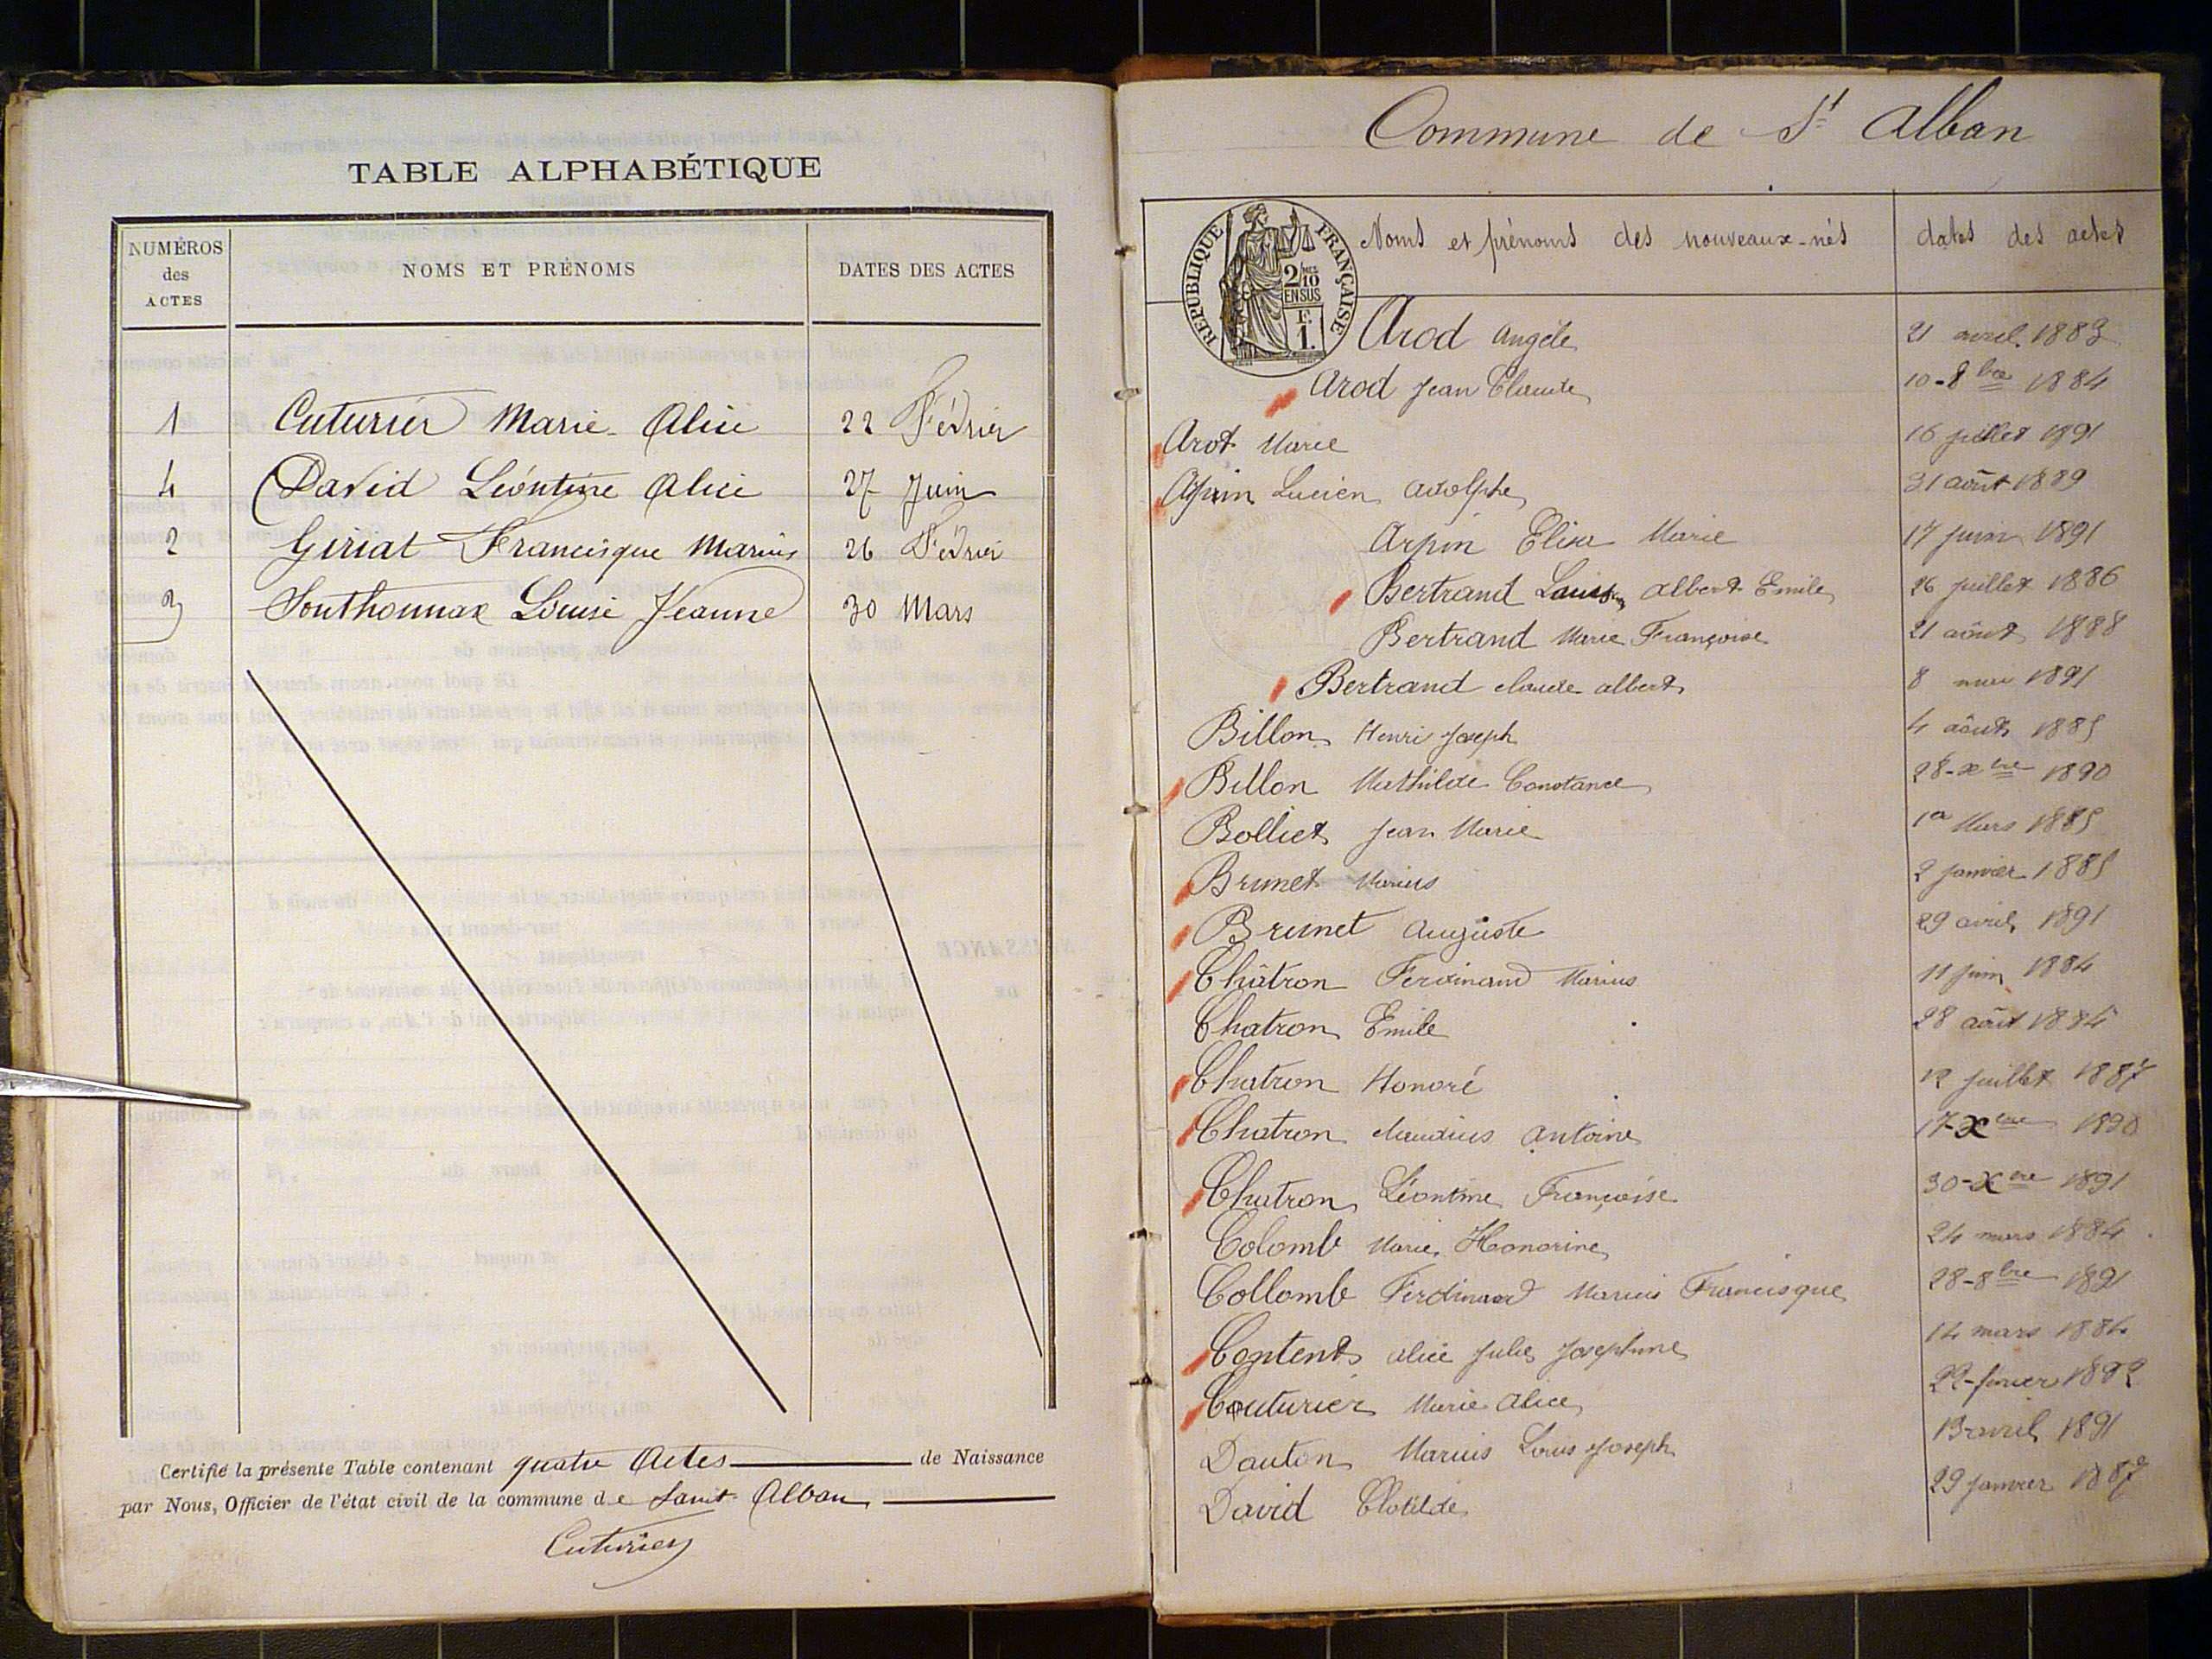 TABLE ALPHABÉTIQUE
NUMÉROS des ACTES
NOMS ET PRÉNOMS
DATES DES ACTES
1 Cuturier Marie Alice 22 Février
4 David Léontine Alice 27 Juin
2 Giriat Francisque Marius 26 Février
3 Southonnax Louise Jeanne 30 Mars
Certifié la présente Table contenant quatre Actes de Naissance
par Nous, Officier de l'état civil de la commune de Saint Alban
Cuturier
Commune de St Alban
Noms et prénoms des nouveaux-nés dates des actes
REPUBLIQUE FRANÇAISE
2/10
EN SUS
1.
Arod Angèle 21 avril 1883
Arod Jean Claude 10-8bre 1884
Arot Marie 16 juillet 1891
Arpin Lucien Adolphe 31 août 1889
Arpin Elisa Marie 17 juin 1891
Bertrand Louis Albert Emile 26 juillet 1886
Bertrand Marie Françoise 21 août 1888
Bertrand Claude Albert 8 mai 1891
Billon Henri Joseph 4 août 1885
Billon Mathilde Constance 28-xbre 1890
Bolliet Jean Marie 1er Mars 1885
Brunet Marius 2 janvier 1885
Brunet Auguste 29 avril 1891
Châtron Ferdinand Marius 11 juin 1884
Chatron Emile 28 août 1884
Chatron Honoré 12 juillet 1887
Chatron Claudius Antoine 17-Xbre 1890
Chatron Léontine Françoise 30-Xbre 1891
Colomb Marie Honorine 24 mars 1884
Collomb Ferdinand Marius Francisque 28-8bre 1891
Content Alice Julie Josephine 14 mars 1884
Couturier Marie Alice 22-février 1892
Dauton Marius Louis Joseph 13 avril 1891
David Clotilde 29 janvier 1887